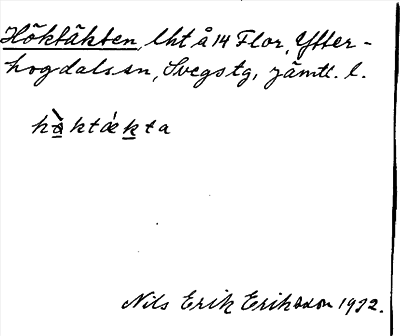 Höktäkten, lht å 14 Flor, Ytter-
hogdals sn, Svegs tg, jämtl. l.
hö̀ktǽkta
Nils Erik Eriksson 1972.